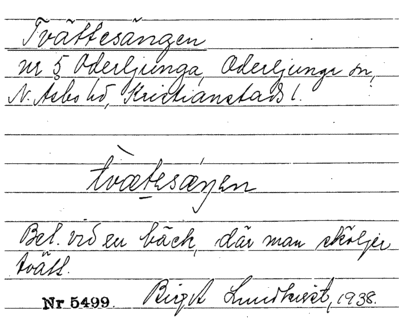 Tvättesängen
nr 5 Oderljunga, Oderljunga sn,
N. Åsbo hd, Kristianstads l.
tvæ̀tesáŋen
Bel. vid en bäck, där man sköljer
tvätt.
Nr 5499. Birgit Lundkvist, 1938.